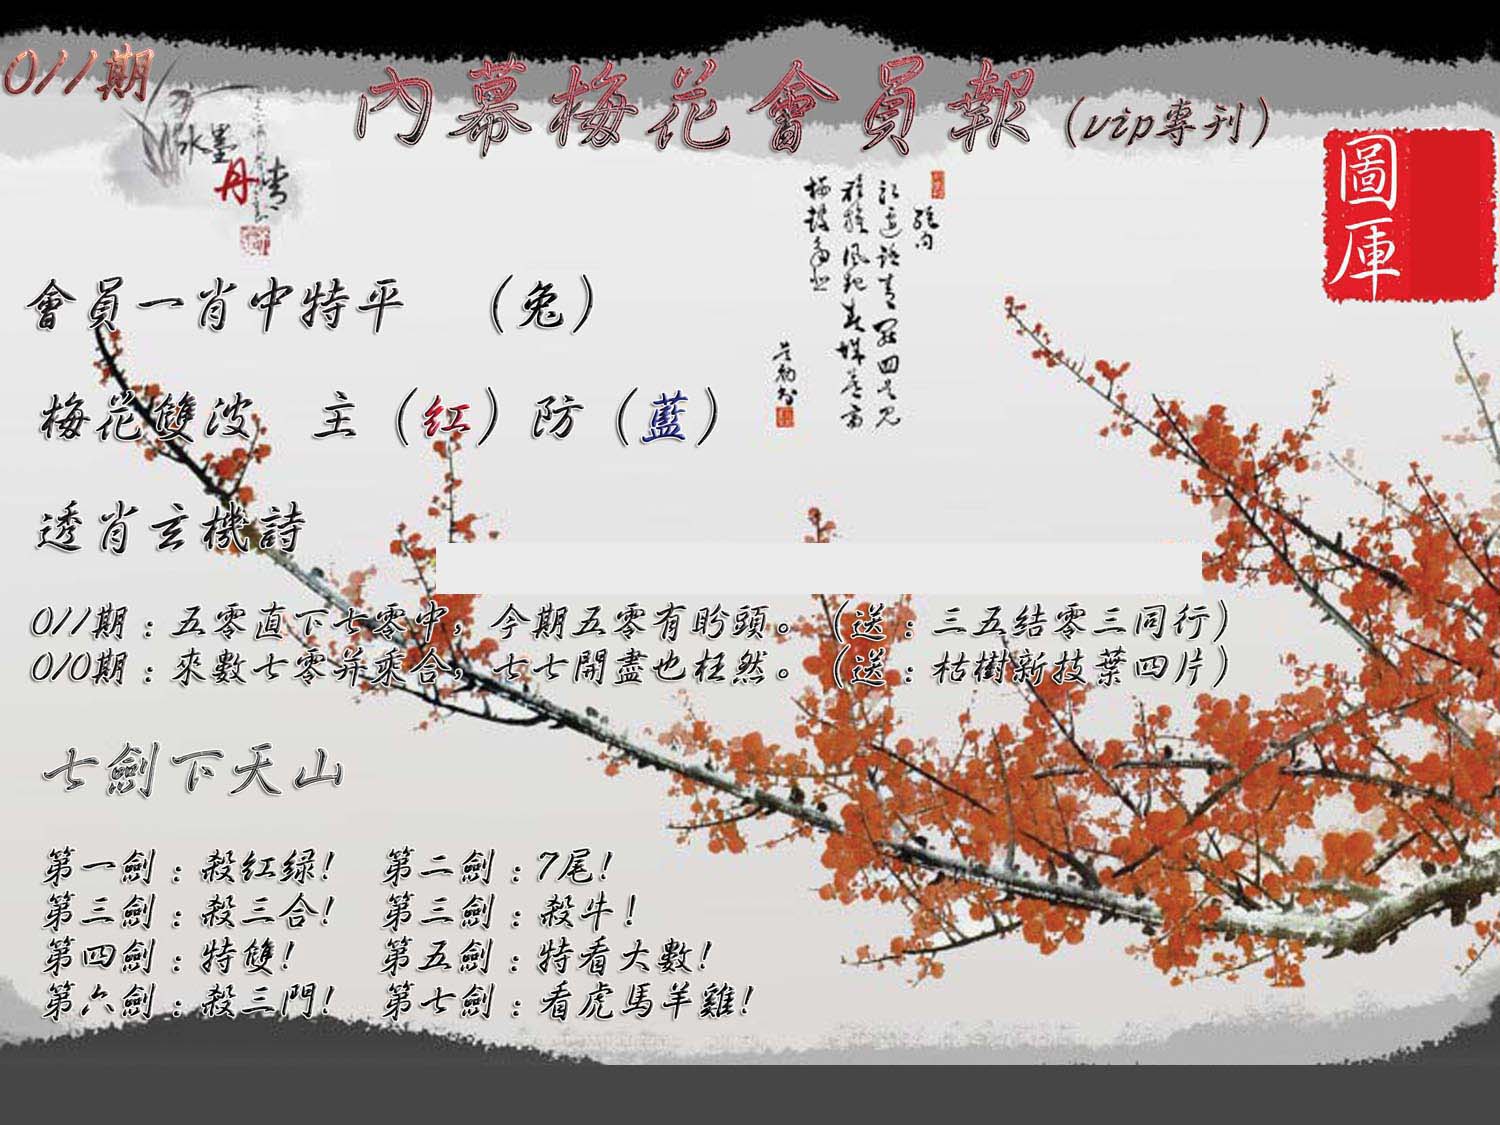 011期
內幕梅花會員報（vip專刊）
水墨
丹青
圖庫
會員一肖中特平　（兔）
梅花雙波　主（紅）防（藍）
透肖玄機詩
011期：五零直下七零中，今期五零有盼頭。（送：三五结零三同行）
010期：來數七零并乘合，七七開盡也枉然。（送：枯樹新技葉四片）
七劍下天山
第一劍：殺紅绿!　第二劍：7尾!
第三劍：殺三合!　第三劍：殺牛!
第四劍：特雙!　第五劍：特看大數!
第六劍：殺三門!　第七劍：看虎馬羊雞!